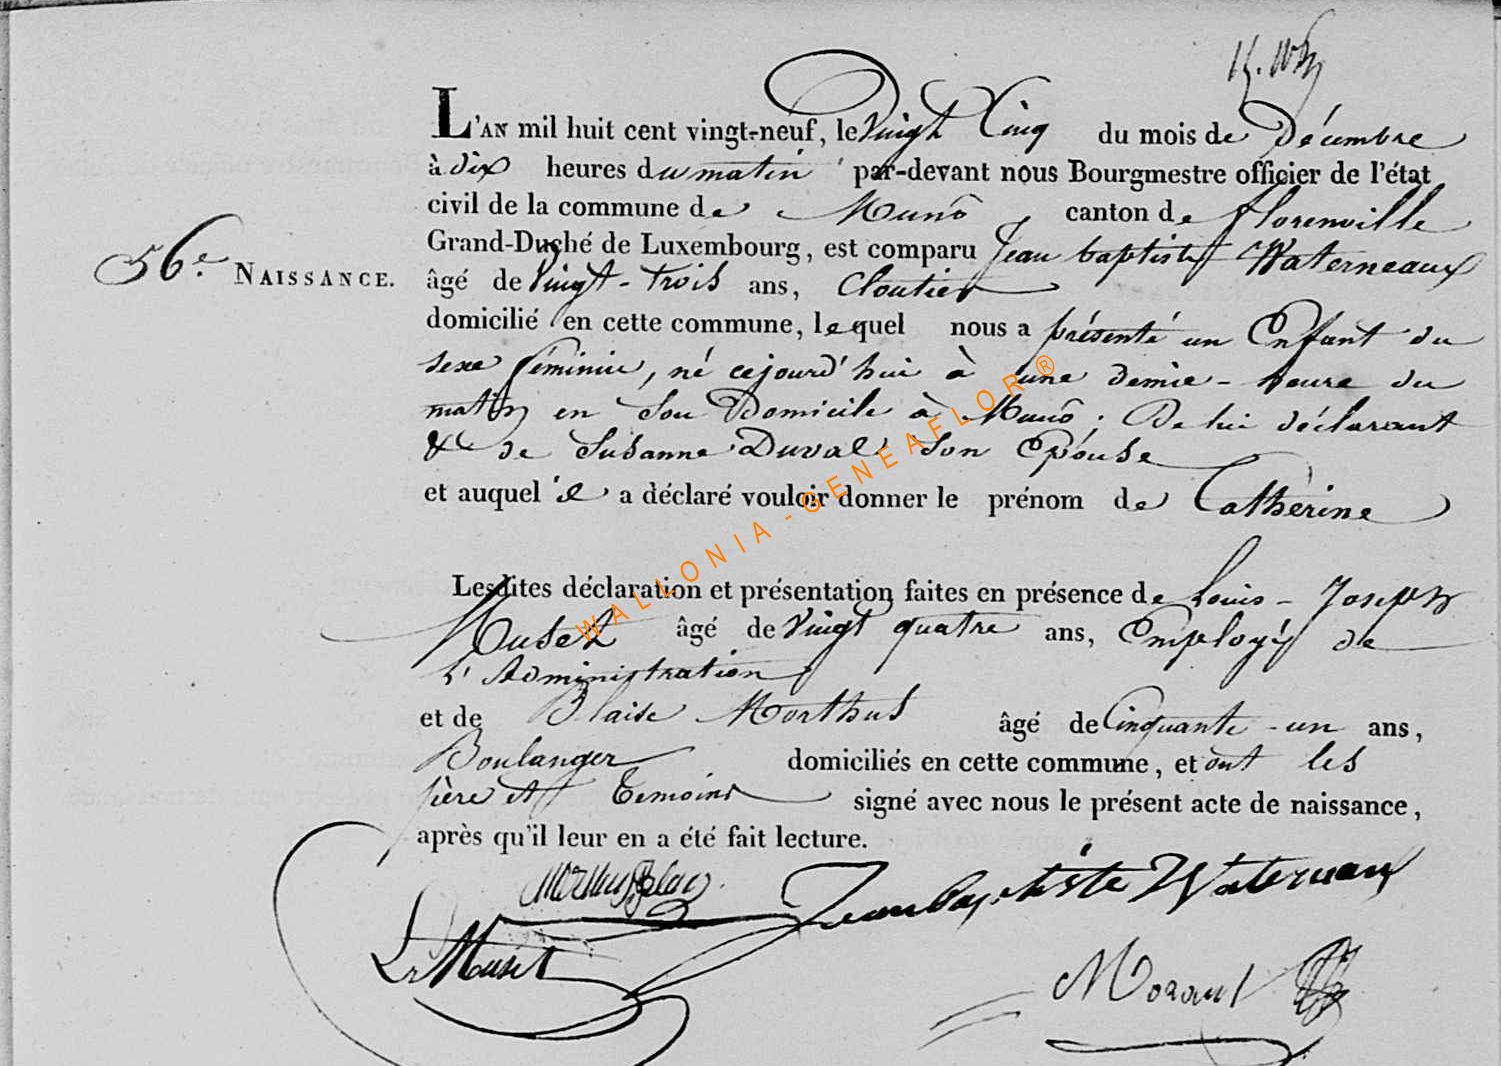 L'AN mil huit cent vingt-neuf, le Vingt Cinq du mois de Décembre
à dix heures du matin par-devant nous Bourgmestre officier de l'état
civil de la commune de Munô canton de florenville
Grand-Duché de Luxembourg, est comparu Jean baptiste Waterneaux
56.e NAISSANCE. âgé de Vingt-trois ans, Cloutier
domicilié en cette commune, lequel nous a présenté un Enfant du
sexe féminin, né cejourd'hui à une demie-heure du
matin en Son Domicile à Munô ; De lui déclarant
& de Susanne Duval Son Epouse
et auquel il a déclaré vouloir donner le prénom de Cathérine
Lesdites déclaration et présentation faites en présence de Louis-Joseph
Muset âgé de Vingt quatre ans, Employé de
l'Administration
et de Blaise Morthus âgé de Cinquante-un ans,
Boulanger domiciliés en cette commune, et ont les
père et Temoins signé avec nous le présent acte de naissance,
après qu'il leur en a été fait lecture.
Jean baptiste Waterneaux
L Muset
WALLONIA-GENEAFLOR®